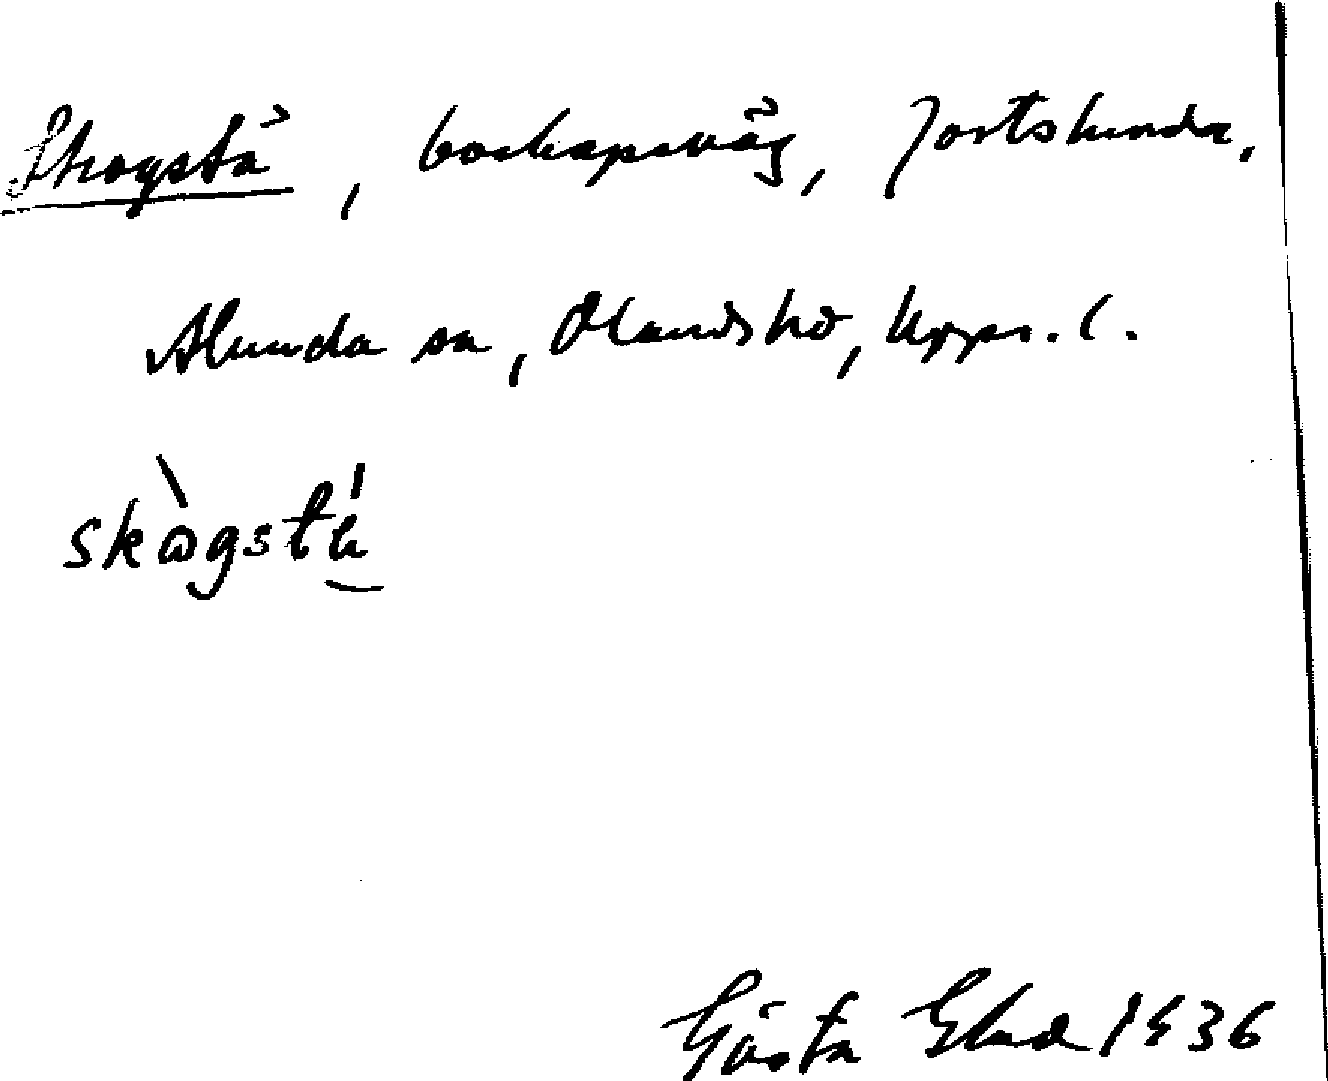 Skogstå, boskapsväg, Jortslunda,
Alunda sn, Olandshd, Upps. l.
skògstá
Gösta Ekad 1936